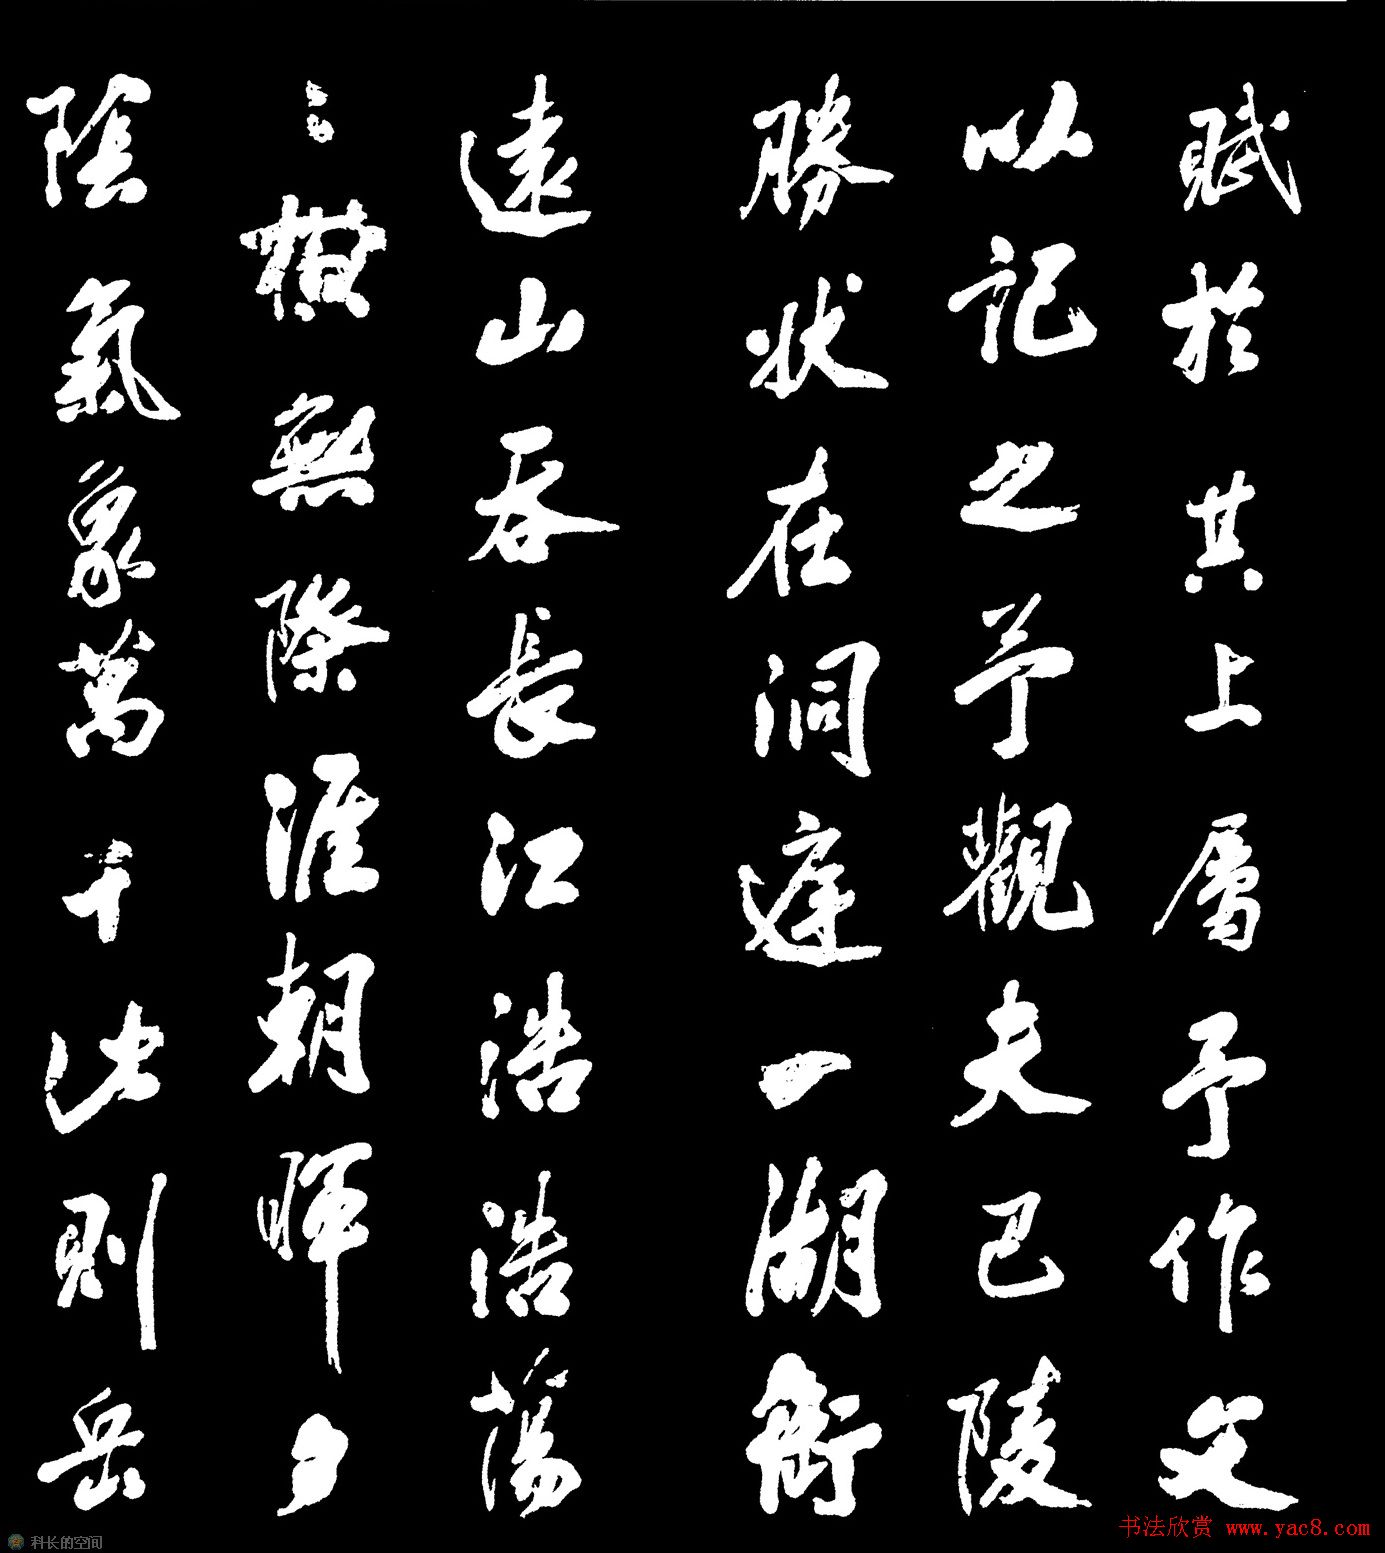 賦於其上屬予作文
以記之予觀夫巴陵
勝狀在洞庭一湖銜
遠山吞長江浩浩蕩
〻橫無際涯朝暉夕
陰氣象萬千此則岳
科长的空间
书法欣赏 www.yac8.com